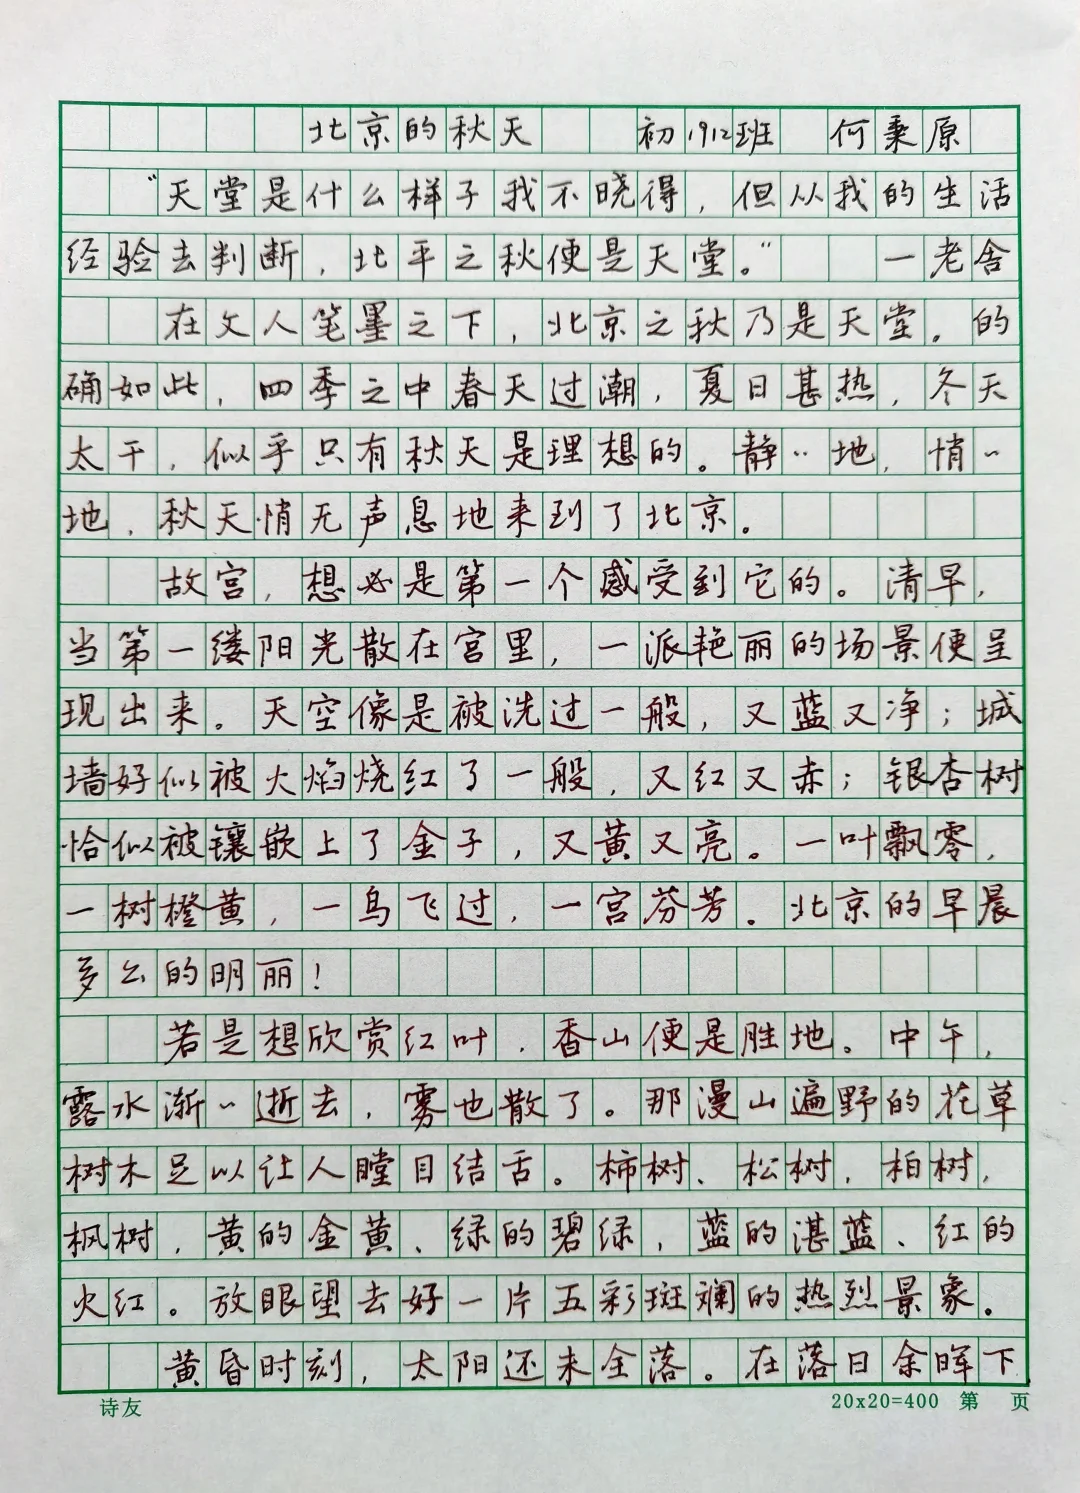 北京的秋天 初1912班 何秉原
“天堂是什么样子我不晓得，但从我的生活
经验去判断，北平之秋便是天堂。” 一老舍
在文人笔墨之下，北京之秋乃是天堂。的
确如此，四季之中春天过潮，夏日甚热，冬天
太干，似乎只有秋天是理想的。静〃地，悄〃
地，秋天悄无声息地来到了北京。
故宫，想必是第一个感受到它的。清早，
当第一缕阳光散在宫里，一派艳丽的场景便呈
现出来。天空像是被洗过一般，又蓝又净；城
墙好似被火焰烧红了一般，又红又赤；银杏树
恰似被镶嵌上了金子，又黄又亮。一叶飘零，
一树橙黄，一鸟飞过，一宫芬芳。北京的早晨
多么的明丽！
若是想欣赏红叶，香山便是胜地。中午，
露水渐〃逝去，雾也散了。那漫山遍野的花草
树木足以让人瞠目结舌。柿树、松树，柏树，
枫树，黄的金黄、绿的碧绿，蓝的湛蓝、红的
火红。放眼望去好一片五彩斑斓的热烈景象。
黄昏时刻，太阳还未全落。在落日余晖下
诗友 20x20=400 第 页